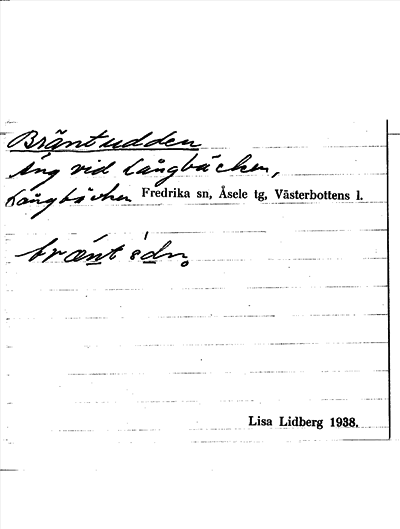 Bräntudden
Äng vid Långbäcken,
Långbäcken Fredrika sn, Åsele tg, Västerbottens l.
Lisa Lidberg 1938.